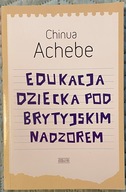 Chinua
Achebe
EDUKACJA
DZIECKA POD
BRYTYJSKIM
NADZOREM